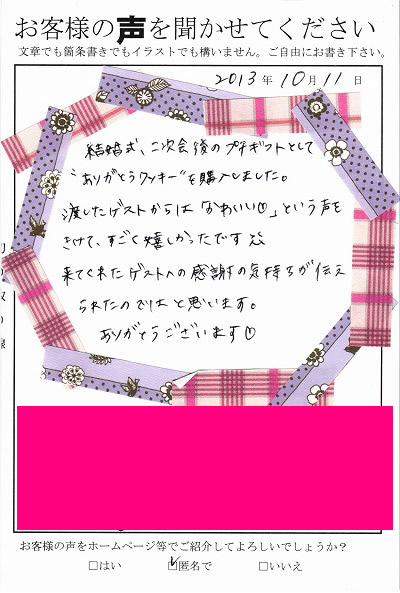 お客様の声を聞かせてください
文章でも箇条書きでもイラストでも構いません。ご自由にお書き下さい。
2013年10月11日
結婚式、二次会後のプチギフトとして
"ありがとうクッキー"を購入しました。
渡したゲストからは「かわいい♡」という声を
きけて、すごく嬉しかったです
来てくれたゲストへの感謝の気持ちが伝え
られたのではと思います。
ありがとうございます♡
お客様の声をホームページ等でご紹介してよろしいでしょうか？
□はい ☑匿名で □いいえ